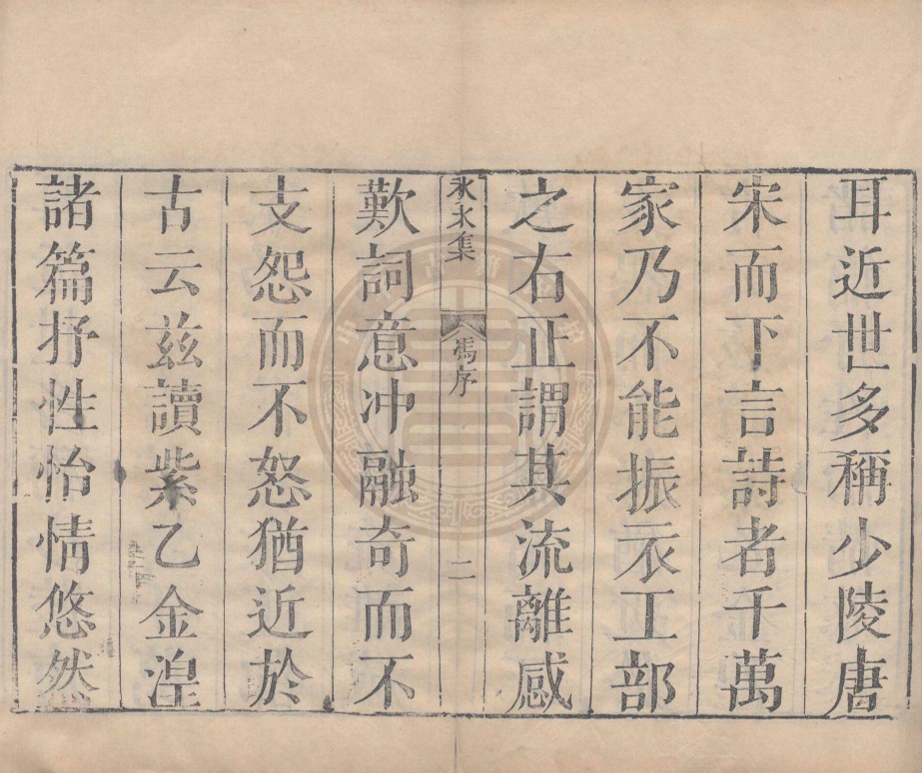 耳近世多稱少陵唐
宋而下言詩者千萬
家乃不能振衣工部
之右正謂其流離感
氷水集 馮序 二
歎詞意冲融奇而不
支怨而不怒猶近於
古云兹讀紫乙金湟
諸篇抒性怡情悠然